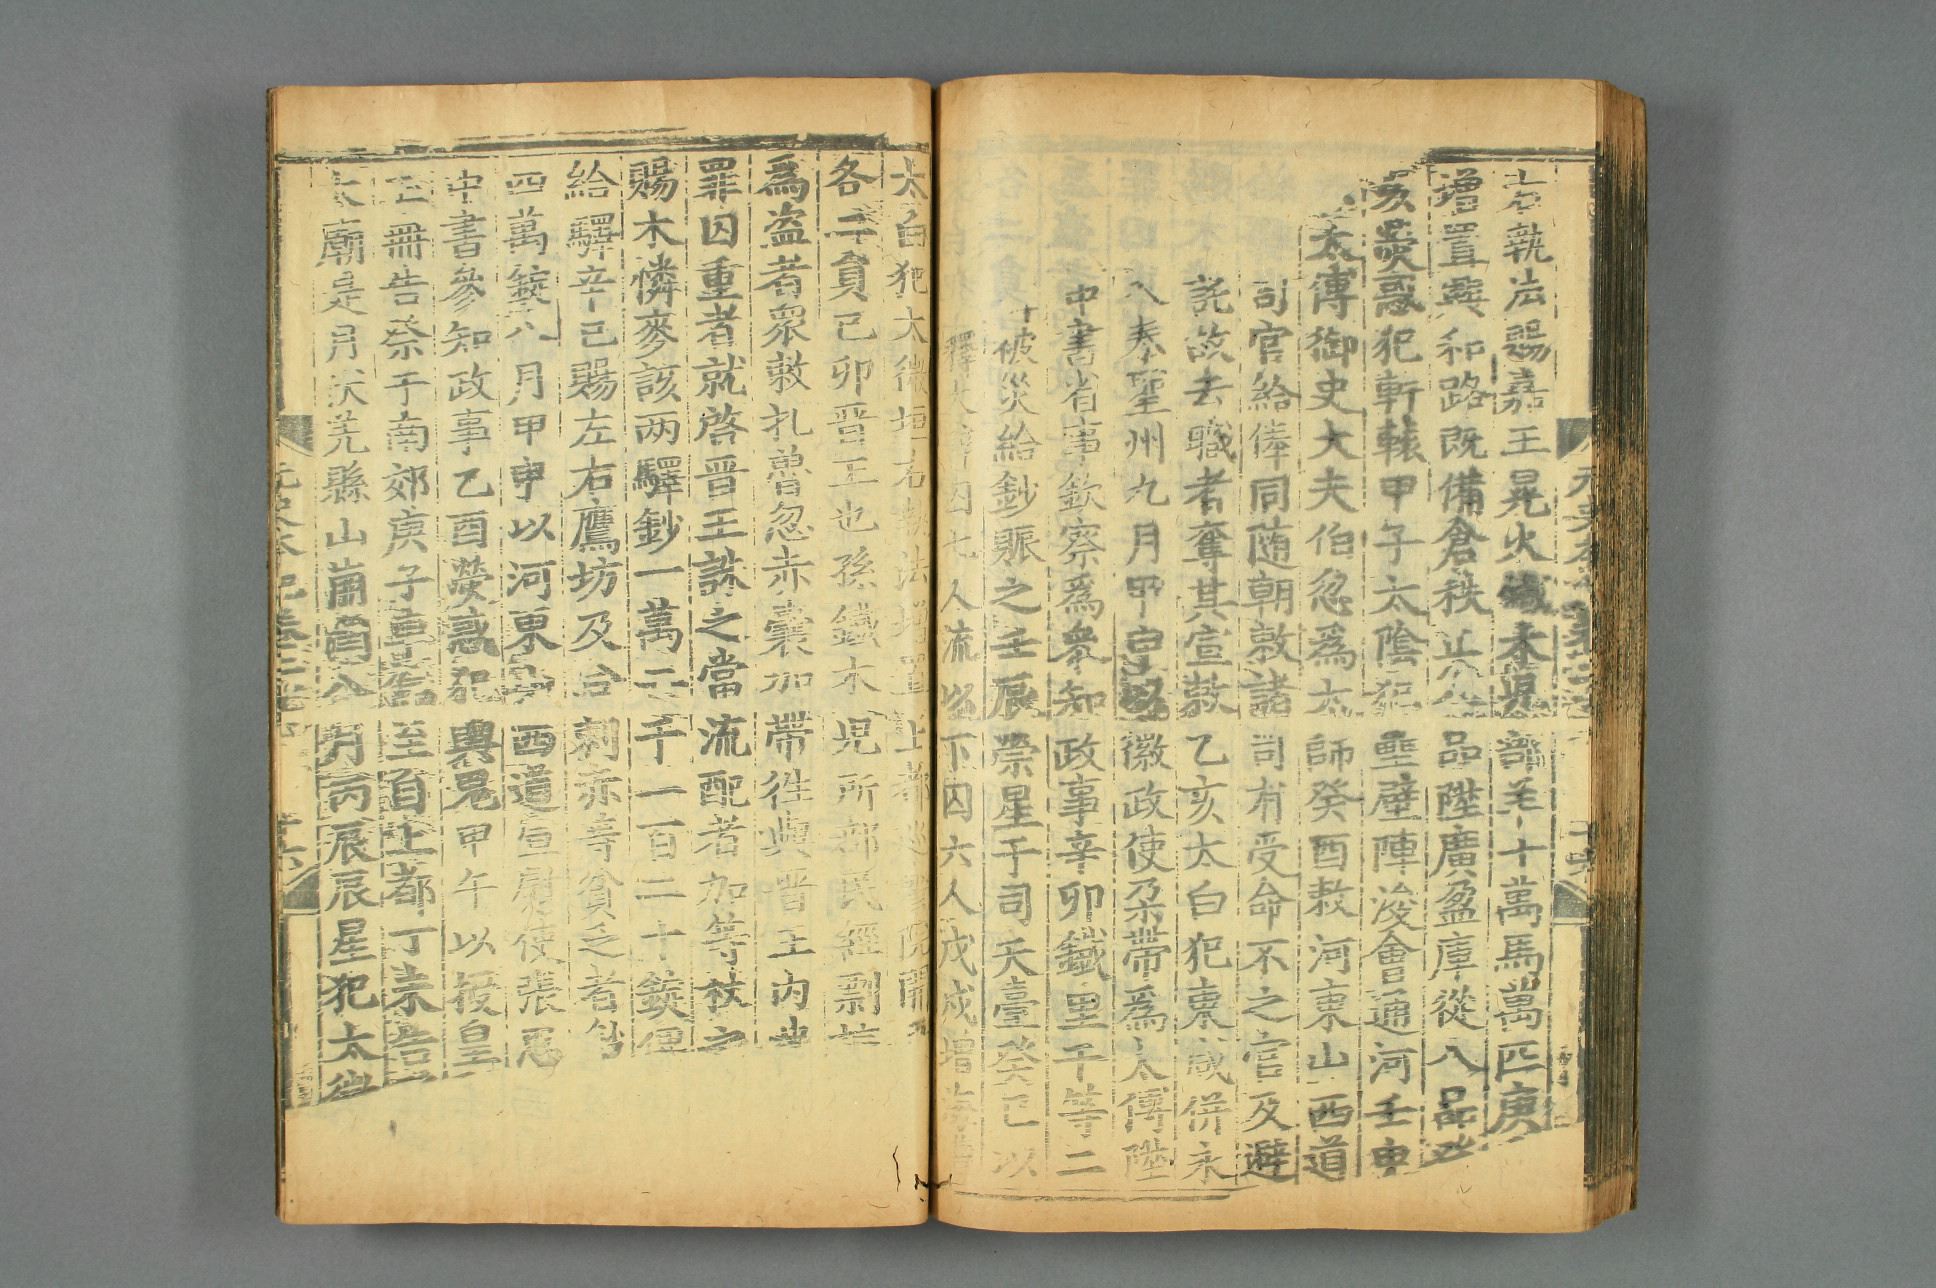 右執法賜嘉王晃火鐵木兒部羊十萬馬萬匹庚
增置興和路既備倉秩正八品陞廣盈庫從八品
亥熒惑犯軒轅甲子太陰犯壘壁陣浚會通河壬申
太傅御史大夫伯忽爲太師癸酉敕河東山西道
司官給俸同隨朝敕諸司有受命不之官及避
託故去職者奪其宣敕乙亥太白犯東咸併永
入奉聖州九月甲申以徽政使朶帶爲太傅陞
中書省事欽察爲參知政事辛卯鐵里干等二
被災給鈔賑之壬辰祟星于司天臺癸巳以
釋大辟囚七人流以下囚六人戊戌增海漕
太白犯太微垣右執法增置上都
各二員己卯晉王也孫鐵木兒所部民經剽
爲盜者衆敕扎魯忽赤囊加帶往與晉王内
罪囚重者就啓晉王誅之當流配者加等杖之
賜木憐麥該兩驛鈔一萬二千一百二十錠俚
給驛辛巳賜左右鷹坊及合剌赤等貧乏者鈔
四萬錠八月甲申以河東 西道宣慰使張思
中書參知政事乙酉熒惑犯輿鬼甲午以授皇
玉冊告祭于南郊庚子車駕至自上都丁未告
太廟是月伏羌縣山崩 八月丙辰辰星犯太微
元史本紀卷二